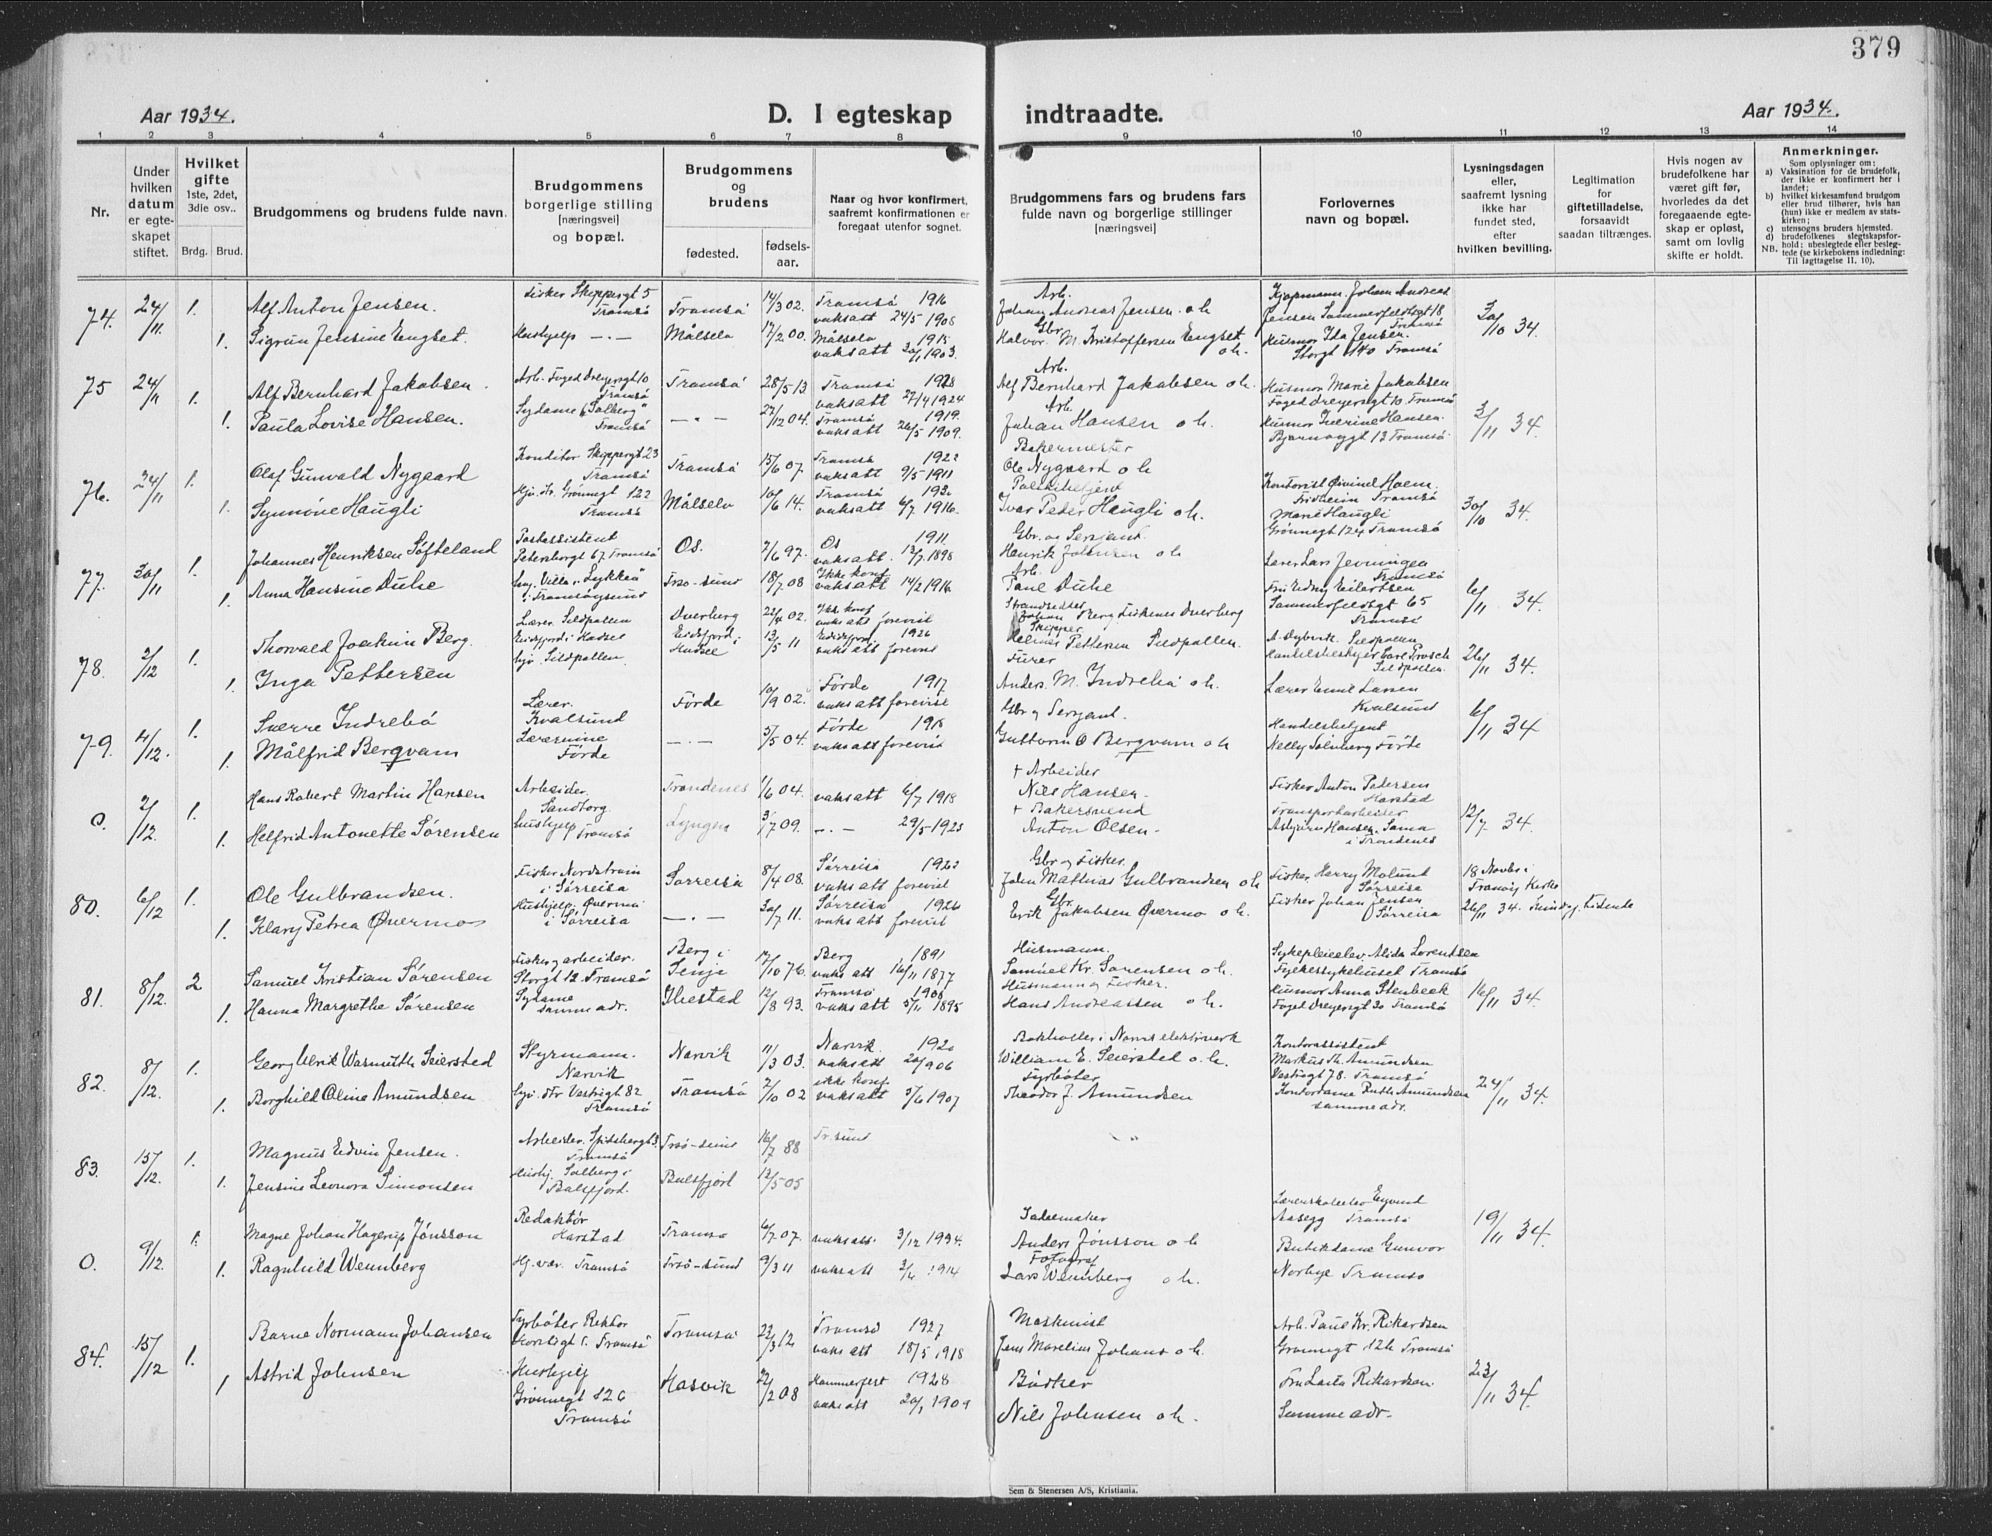 379
Aar 1934.
D. I egteskap
indtraadte.
Aar 1934.
1 2 3 4 5 6 7 8 9 10 11 12 13 14
Nr.
Under hvilken datum er egteskapet stiftet.
Hvilket gifte
1ste, 2det, 3die osv..
Brdg. Brud.
Brudgommens og brudens fulde navn.
Brudgommens borgerlige stilling [næringsvei] og bopæl.
Brudgommens og brudens
fødested.
fødsels-aar.
Naar og hvor konfirmert, saafremt konfirmationen er foregaat utenfor sognet.
Brudgommens fars og brudens fars fulde navn og borgerlige stillinger [næringsvei]
Forlovernes navn og bopæl.
Lysningsdagen eller, saafremt lysning ikke har fundet sted, efter hvilken bevilling.
Legitimation for giftetilladelse, forsaavidt saadan tiltrænges.
Hvis nogen av brudefolkene har været gift før, hvorledes da det foregaaende egteskap er opløst, samt om lovlig skifte er holdt.
Anmerkninger.
Som oplysninger om:
a) Vaksination for de brudefolk, der ikke er konfirmert her i landet;
b) hvilket kirkesamfund brudgom eller brud tilhører, hvis han (hun) ikke er medlem av statskirken;
c) utensogns bruders hjemsted.
d) brudefolkenes slegtskapsforhold: ubeslegtede eller beslegtede (se kirkebokens indledning:
NB. Til Iagttagelse II. 10).
74. 24/11 1. Alf Anton Jensen. Fisker Skippergt 5 Tromsø Tromsø 14/3 02. Tromsø 1916 vaks att 24/5 1908 Arb. Johan Andreas Jensen o h Kjøpmann Johan Andreas Jensen Sommerfeldtgt 18 Tromsø 30/10 34.
1. Sigrun Jensine Engset. Hushjelp -"- Målselv 17/2 00. Målselv 1915 vaks att 20/1 1903. Gbr. Halvor M. Kristoffersen Engset o h. Husmor Ida Jensen. Storgt 140 Tromsø
75 24/11 1. Alf Bernhard Jakobsen. Arb. Foged Dreyersgt 10 Tromsø Tromsø 28/5 13 Tromsø 1928 vaks att 27/4 1924 Arb. Alf Bernhard Jakobsen o h. Husmor Marie Jakobsen Foged Dreyersgt 10 Tromsø 3/11 34.
1. Paula Lovise Hansen. Sydame "Solberg" Tromsø -"- 27/12 04. Tromsø 1919. vaks att 26/5 1909. Arb. Johan Hansen o h. Husmor Hansen. 13 Tromsø
76. 24/11 1. Olaf Gunvald Nygaard Konditor Skippergt 23 Tromsø Tromsø 15/6 07. Tromsø 1922 vaks att 9/5 1911 Bakermester Ole Nygaard o h Kontorist Øivind Holm. Fridheim Tromsø 30/10 34.
1. Synnøve Haugli Hjv. Fr. Grønnegt 122 Tromsø Målselv 10/6 14. Tromsø vaks att 6/7 1916. Politibetjent Ivar Peder Haugli o h. Marie Haugli Grønnegt 124 Tromsø
77. 30/11 1. Johannes Henriksen Søfteland Postassistent Petersborgt 67 Tromsø Os. 7/6 97. Os 1911. vaks att. 13/7 1898 Gbr. og Sersjant. Henrik Johnsen o h Lærer Lars Jevningen Tromsø 6/11 34.
1. Anna Hansine Duhe Villa "Lykken" i Tromsøysund Tsø-sund 18/7 08 Ikke konf vaks att 14/2 1916 Arb. Paul Duhe Fru Edny Eilertsen Sommerfeldtgt 65 Tromsø
78. 2/12 1. Thorvald Joakim Berg. Lærer Sildpollen Eidsfjord i Hadsel Dverberg 22/4 02. Ikke konf vaks att forevist Strandsidder Johan Berg Fiskenes Dverberg A. Dybvik. Sildpollen 26/11 34.
1. Inga Pettersen Hjv. Sildpollen. Eidsfjord i Hadsel 13/5 11 Eidsfjord. 1926 vaks att forevist Skipper Petterson Sildpollen. Handelsbestyrer Sildpollen.
79. 4/12. 1. Sverre Indrebö Lærer. Kvalsund Førde 10/9 02. Førde 1917 vaks att forevist Furer Anders M. Indrebø o h. Lærer Emil Larsen Kvalsund 6/11 34
1. Målfrid Bergvam Lærerinne Førde -"- 5/5 04. Førde 1918 vaks att forevist Gbr og Sersjant. Guttorm O Bergvam o h Handelsbetjent Nelly Solnberg Førde
0. 2/12. 1. Hans Robert Martin Hansen Arbeider. Sandtorg Trondenes 1/6 04. vaks att 6/7 1918 + Arbeider Nils Hansen. Fisker Anton Pedersen Harstad 12/7 34.
1. Helfrid Antonette Sørensen Hushjelp Tromsø Lyngen 3/7 09. -"- 29/5 1923 + Bakersvend Anton Olsen. Transportarbeider Asbjørn Hansen. Sama i Trondenes
80. 6/12 1. Ole Gulbrandsen. Fisker Nordstraum i Sørreisa Sørreisa 8/4 08. Sørreisa 1923 vaks att forevist Gbr og Fisker. John Mathias Gulbrandsen o h Fisker Harry Molund Sørreisa 18 Novbr i Tranøy Kirke
1. Klary Petrea Øvermo Hushjelp. Øvermo i Sørreisa -"- 30/7 11. Sørreisa 1926 vaks att forevist Gbr. Erik Jakobsen Øvermo o h. Fisker Johan Jensen Sørreisa 26/11 34.
81. 8/12. 2 Samuel Kristian Sørensen Fisker og arbeider. Storgt 12 Tromsø Berg i Senja 17/10 76. Berg 1891 vaks att 16/11 1877 Husmann. Samuel Kr. Sørensen o h. Sykepleieelev Alida Lorentsen Fylkessykehuset Tromsø 16/11 34.
1. Hanna Margrethe Sørensen Sydame samme adr. Ibestad 12/8 93. Tromsø 1908 vaks att 5/11 1895 Husmann og Fisker. Hans Andreassen o h. Husmor Anna Stenbeck Foged Dreyersgt 30 Tromsø
82. 8/12. 1. Georg Ulrik Wasmuth Seiersted Styrmann. Narvik Narvik 11/3 03. Narvik. 1920 vaks att 20/9 06 Bokholder i Narvs elektverk William E. Seiersted o h. Kontorassistent Markus Th. Amundsen Vestregt 78. Tromsø 24/11 34.
1. Borghild Oline Amundsen Hjv. Fr Vestregt 82 Tromsø Tromsø 2/10 02 ikke konf vaks att 5/6 1907 Fyrbøter Theodor J. Amundsen Kontordame Ruth Amundsen samme adr.
83. 15/12. 1. Magnus Edvin Jensen. Arbeider. Spitsbergt 3. Tromsø Tsø-sund 16/7 88 Tr.sund
1. Jensine Leonora Simonsen Hushj. Solberg i Balsfjord. Balsfjord 12/5 05
0. 9/12. 1. Magne Johan Hagerup Jönsson Redaktør Harstad Tromsø 6/7 07. vaks att 3/12 1934. Sadelmaker Anders Jönsson o h Lærerskoleelev Eyvind Aasegg Tromsø 19/11 34.
1. Ragnhild Wennberg Hj.vær. Tromsø Tsø-sund 9/3 11 vaks att 3/6 1914 Fotograf Lars Wennberg o h. Butikdame Gunvor Norbye Tromsø
84. 15/12 1. Barne Normann Johansen Fyrbøter Rektor Horstigt 1. Tromsø Tromsø 22/3 12 Tromsø 1927 vaks att 18/5 1918 Maskinist Jens Marelius Johans o h. Arb. Paul Kr. Rikardsen Grønnegt 126 Tromsø 23/11 34.
1 Astrid Johnsen Hushjelp Grønnegt 126 Tromsø Hasvik 22/2 08 Hammerfest 1928 vaks att 20/1 1909 Bødker Nils Johnsen o h. Fru Laila Rikardsen. Samme adr.
Sem & Stenersen A/S, Kristiania.